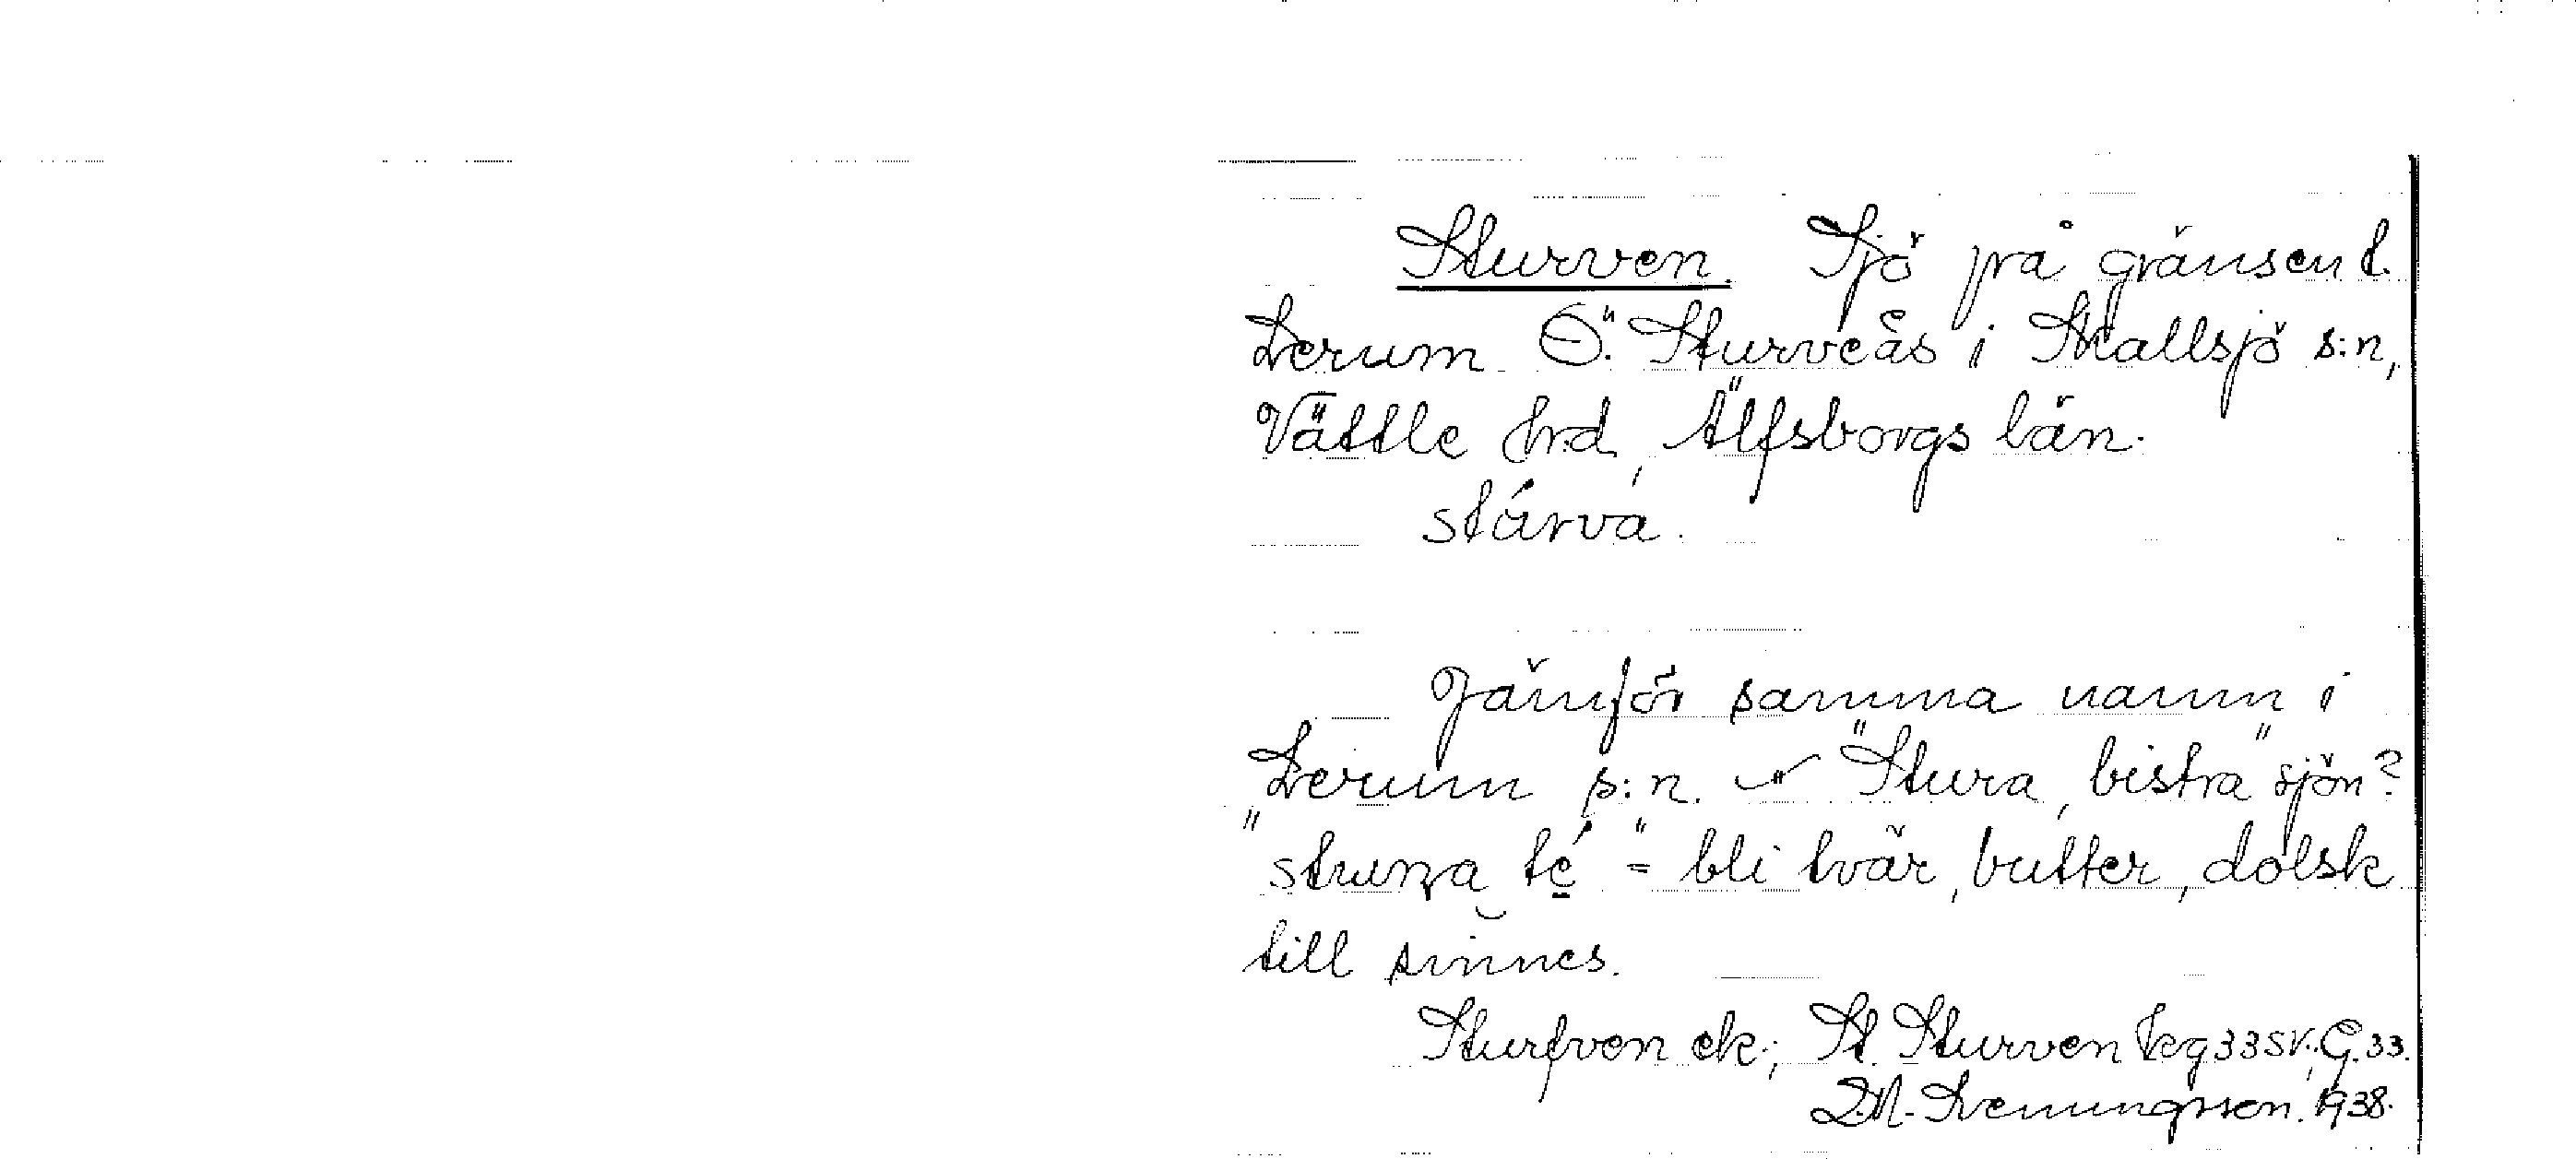 Sturven. Sjö på gränsen t.
Lerum Ö. Sturveås i Skallsjö s:n,
Vättle hrd, Älfsborgs län.
stárva.
Jämför samma namn i
Lerum s:n. "Stura, bistra" sjön?
"sturna té" = bli tvär, butter, dolsk
till sinnes.
Sturfven ek.; St. Sturven kg 33 SV.; G. 33.
1938.